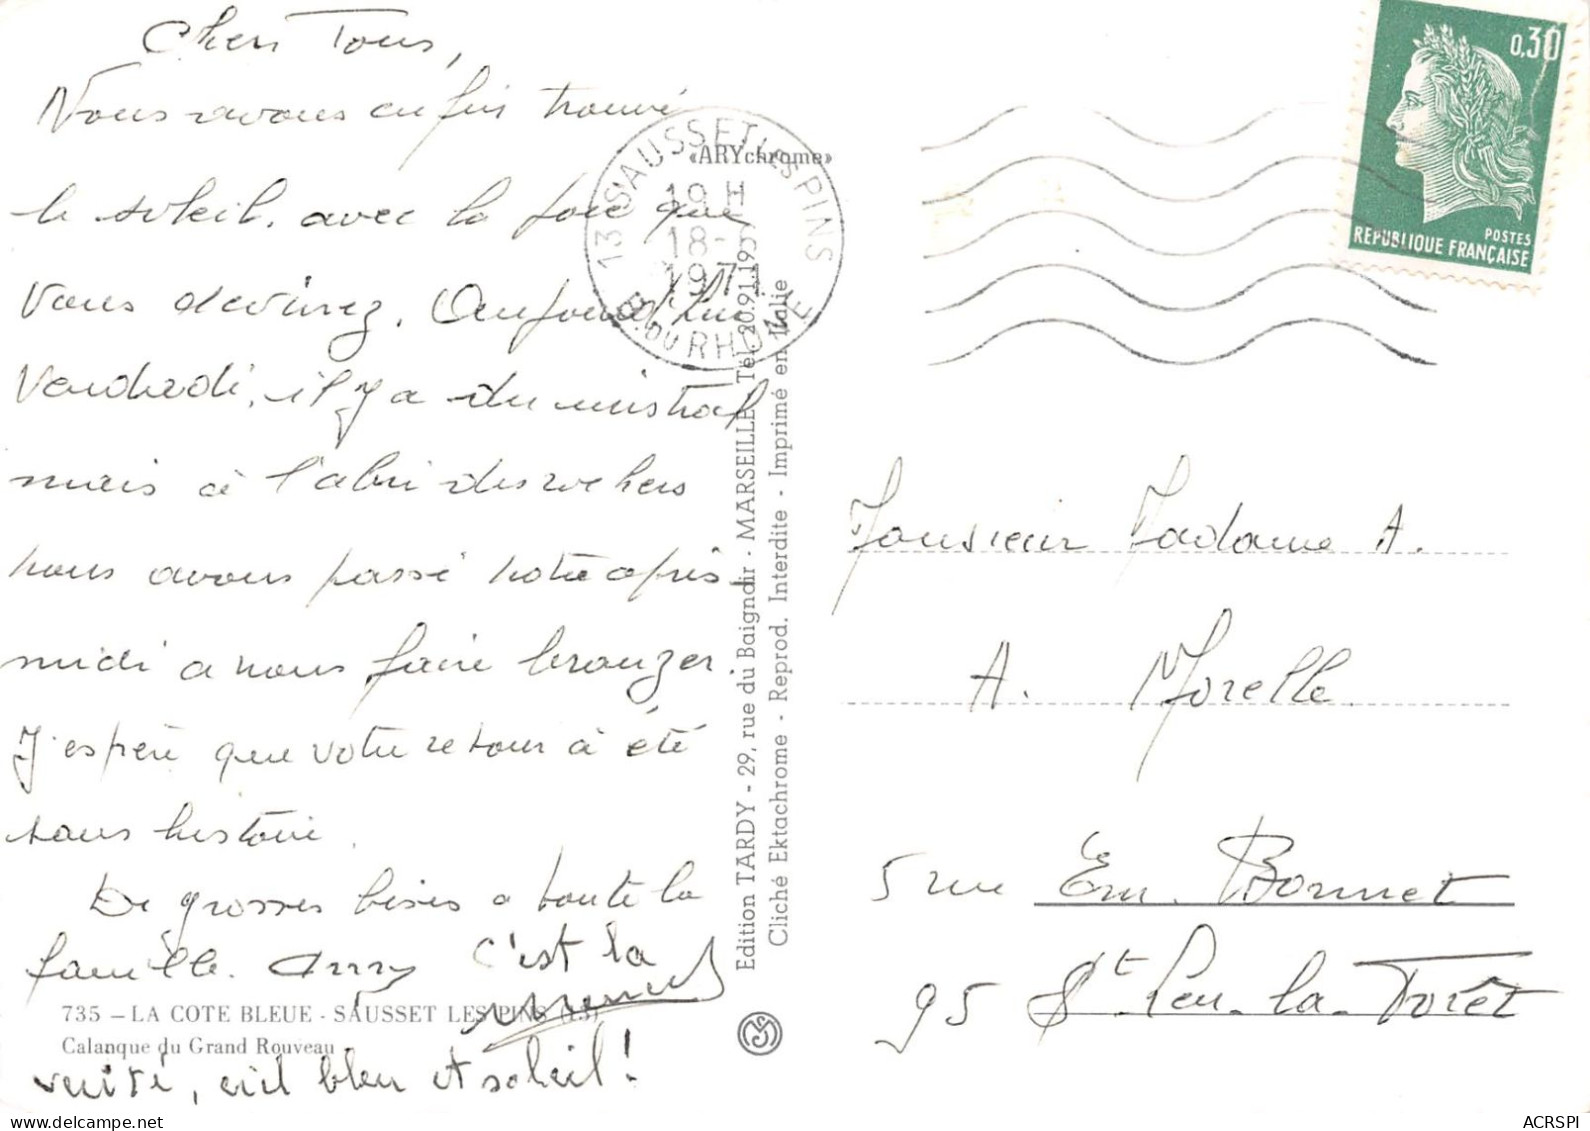 Chers Tous,
Nous avons enfin trouvé
le soleil, avec la joie que
vous devinez. Aujourd'hui
Vendredi, il y a du mistral
mais à l'abri des rochers
nous avons passé notre après
midi a nous faire bronzer.
J'espère que votre retour a été
sans histoire.
De grosses bises a toute la
famille. Anny c'est la
vérité, ciel bleu et soleil!
735 - LA COTE BLEUE - SAUSSET LES PINS (13)
Calanque du Grand Rouveau
«ARYchrome»
Edition TARDY - 29, rue du Baignoir - MARSEILLE Tél. 20.91.1957
Cliché Ektachrome - Reprod. Interdite - Imprimé en Italie
13 SAUSSET LES PINS
19 H
18-
1971
B. DU RHONE
0,30
POSTES
REPUBLIQUE FRANÇAISE
Monsieur Madame A.
A. Morelle
5 rue Em. Bonnet
95 St Leu-la-Forêt
ACRSPI